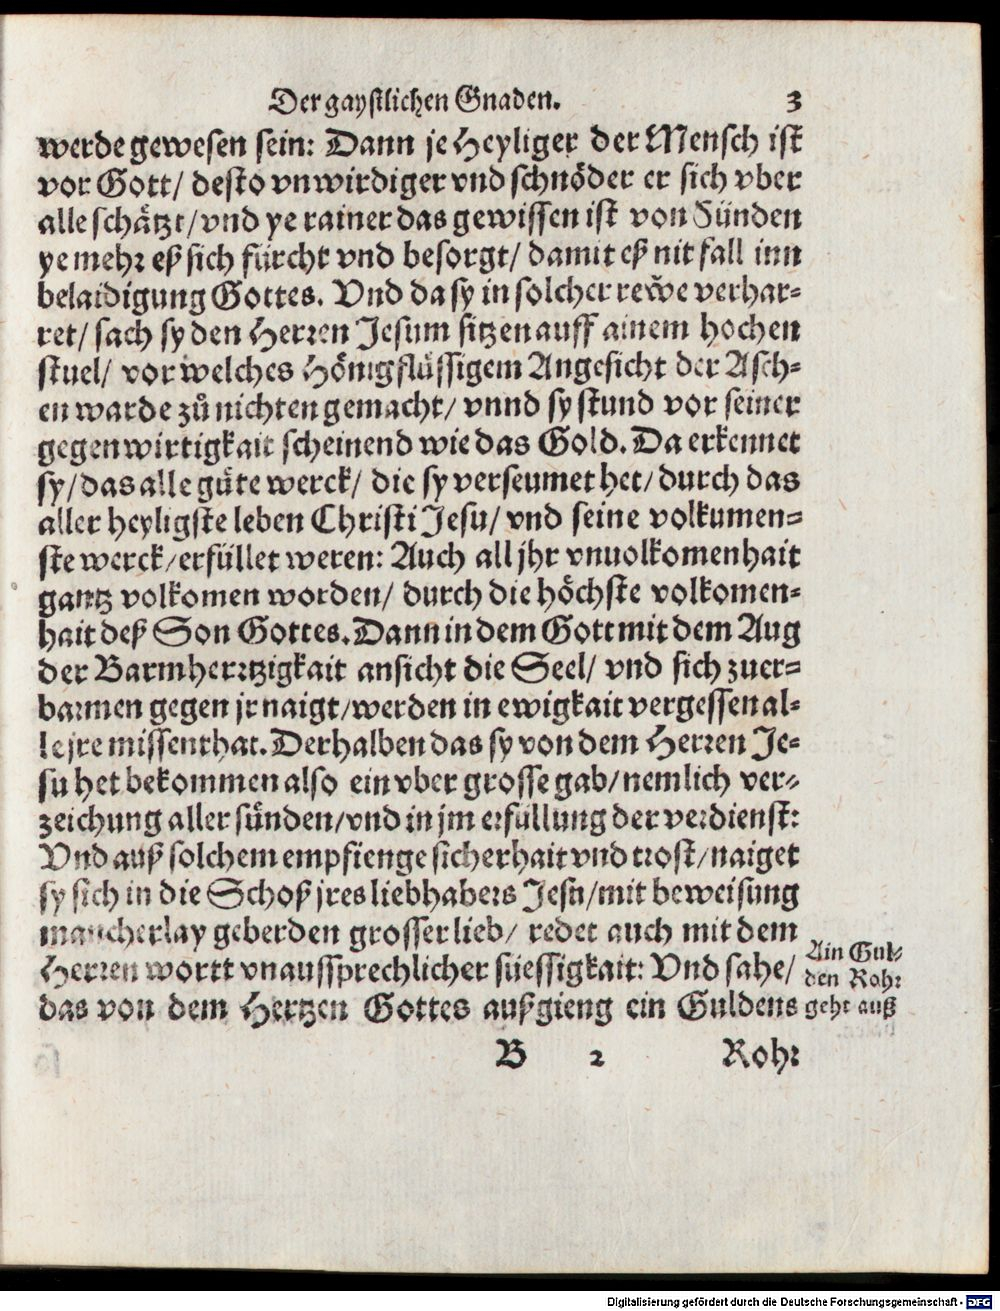 Der gaystlichen Gnaden. 3
werde gewesen sein: Dann je Heyliger der Mensch ist
vor Gott/ desto vnwirdiger vnd schnöder er sich vber
alle schätzt/vnd ye rainer das gewissen ist von Sünden
ye mehr eß sich fürcht vnd besorgt/ damit eß nit fall inn
belaidigung Gottes. Vnd da sy in solcher rewe verhar⸗
ret/ sach sy den Herren Jesum sitzen auff ainem hochen
stuel/ vor welches Hönigflüssigem Angesicht der Asch⸗
en warde zů nichten gemacht/ vnnd sy stund vor seiner
gegenwirtigkait scheinend wie das Gold. Da erkennet
sy/das alle gůte werck/ die sy verseumet het/ durch das
aller heyligste leben Christi Jesu/ vnd seine volkumen⸗
ste werck/erfüllet weren: Auch all jhr vnuolkomenhait
gantz volkomen worden/ durch die höchste volkomen⸗
hait deß Son Gottes. Dann in dem Gott mit dem Aug
der Barmherrtzigkait ansicht die Seel/ vnd sich zuer⸗
barmen gegen jr naigt/werden in ewigkait vergessen al⸗
le jre missenthat. Derhalben das sy von dem Herren Je⸗
su het bekommen also ein vber grosse gab/nemlich ver⸗
zeichung aller sünden/vnd in jm erfüllung der verdienst:
Vnd auß solchem empfienge sicherhait vnd trost/naiget
sy sich in die Schoß jres liebhabers Jesu/mit beweisung
mancherlay geberden grosser lieb/ redet auch mit dem
Herren wortt vnaussprechlicher süessigkait: Vnd sahe/
das von dem Hertzen Gottes außgieng ein Guldens
Ain Gul⸗
den Rohr
geht auß
B 2 Rohr
Digitalisierung gefördert durch die Deutsche Forschungsgemeinschaft - DFG